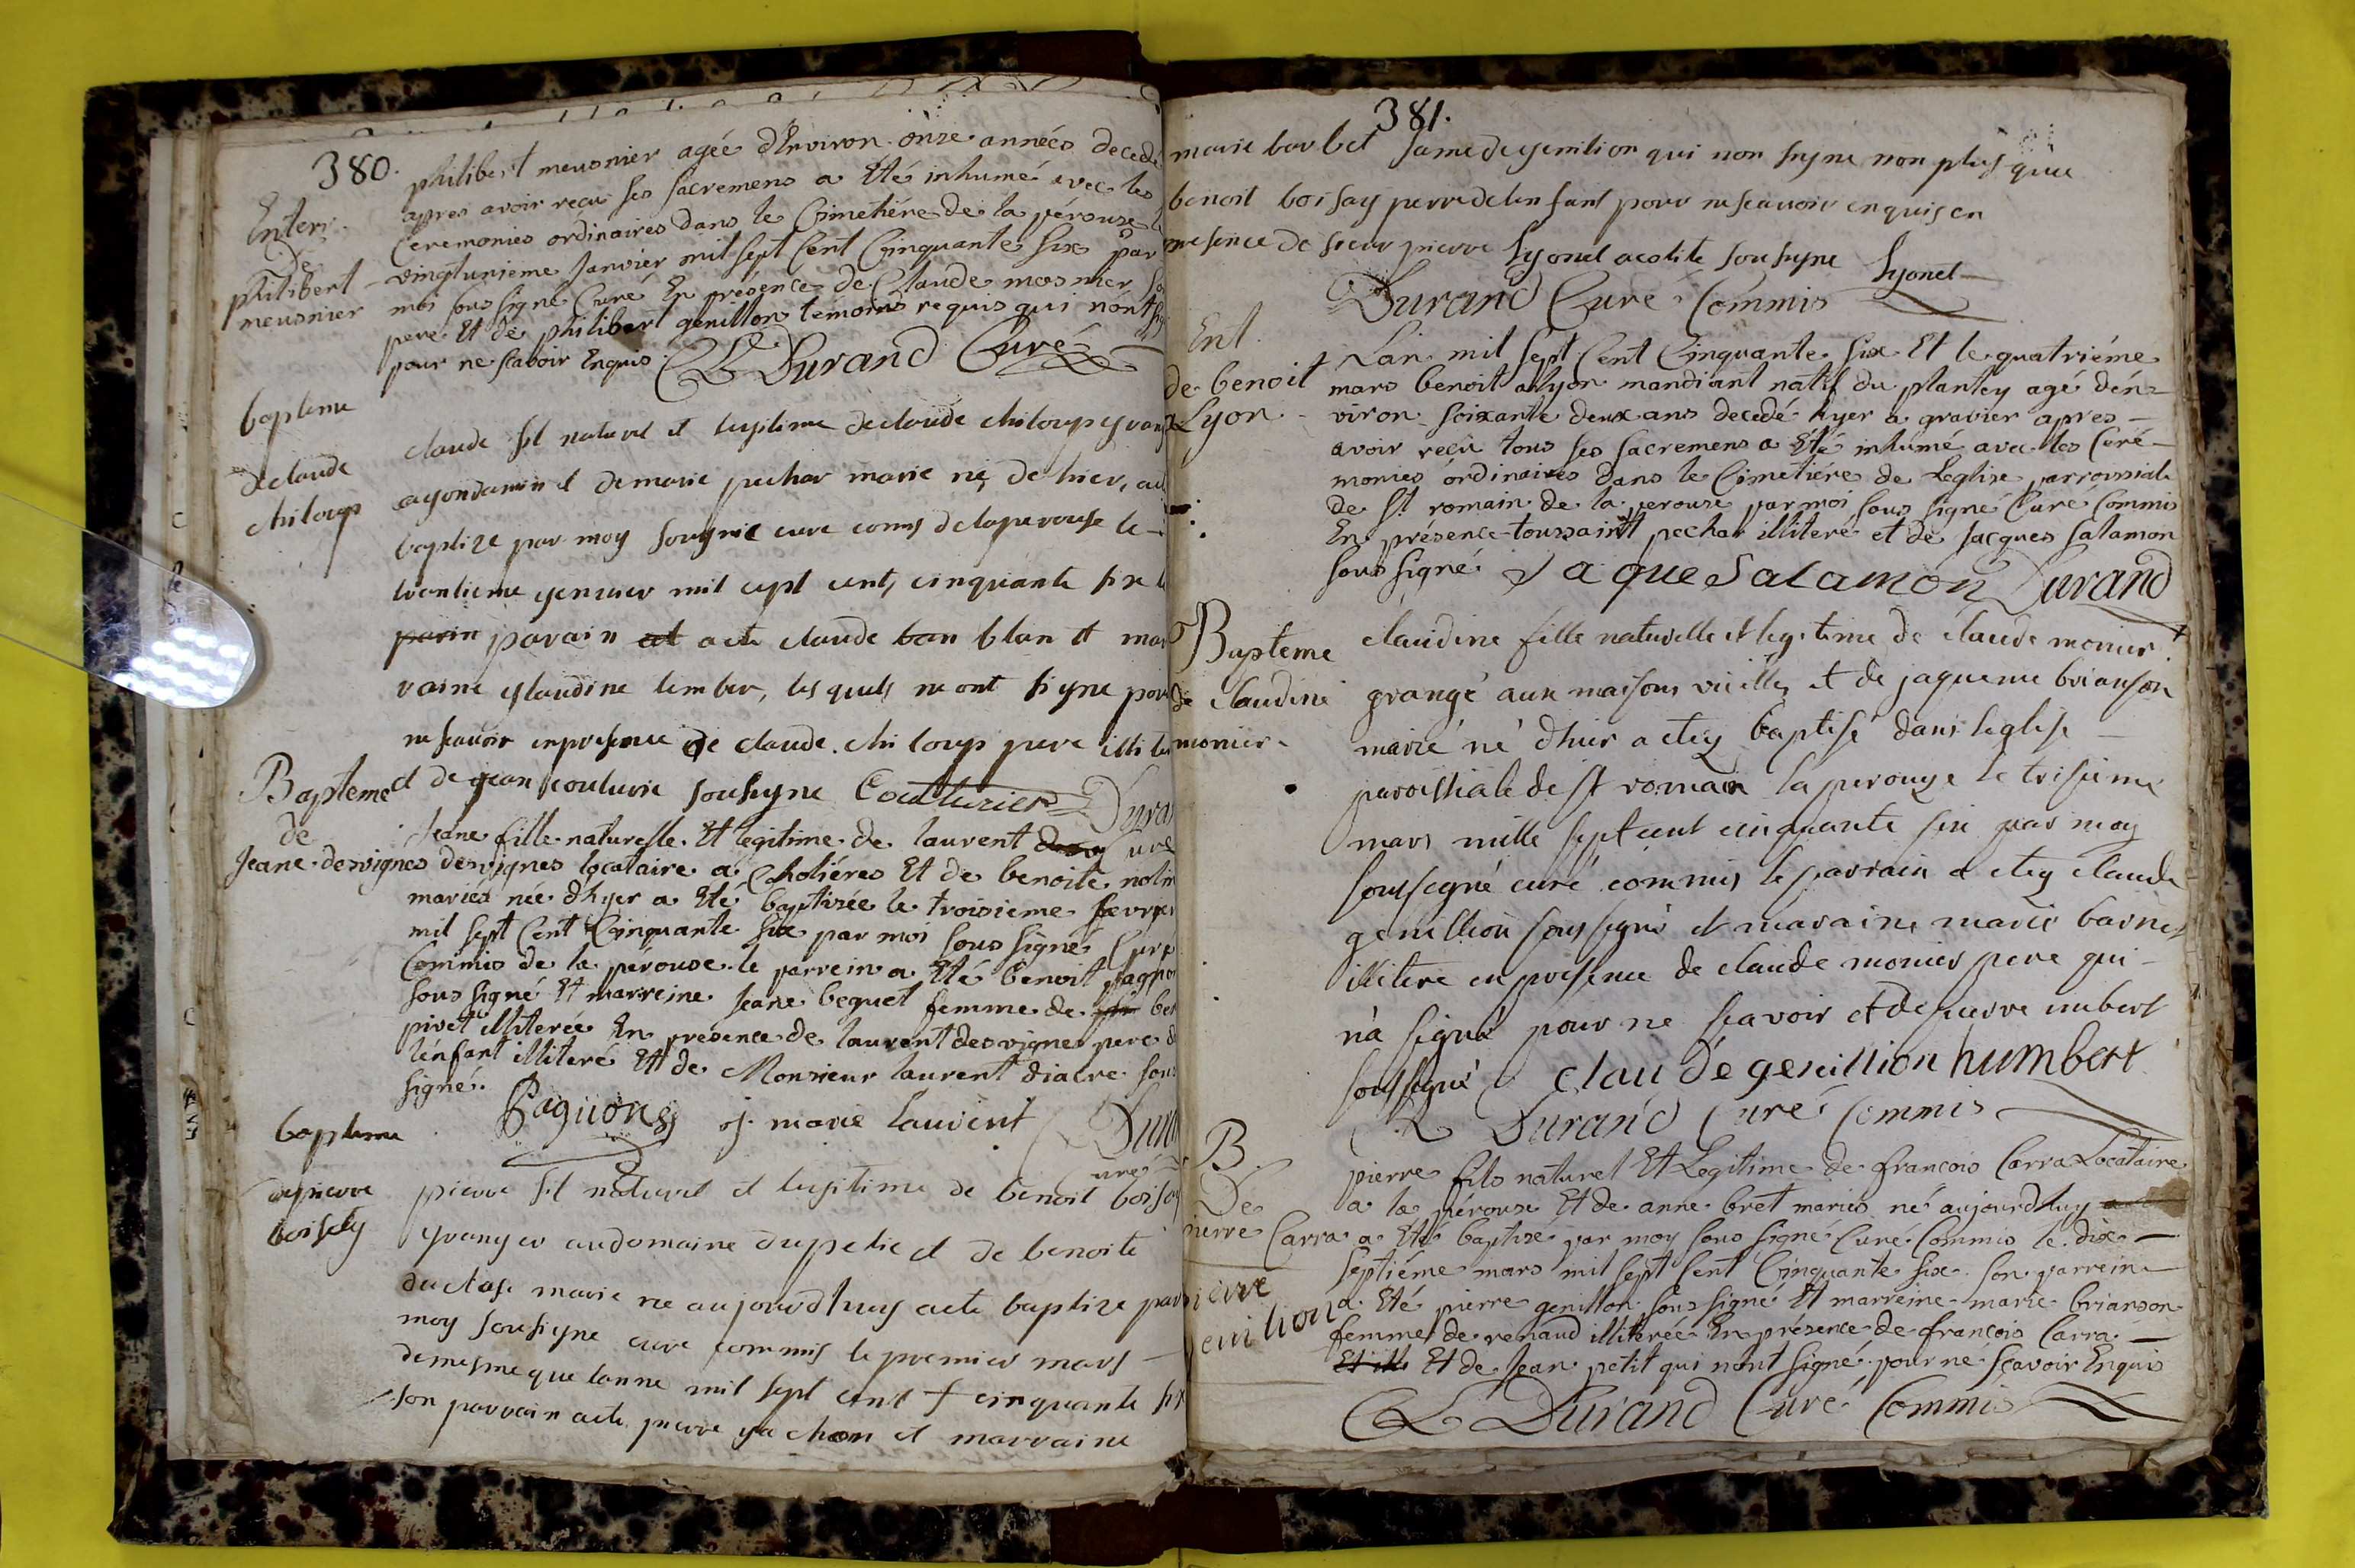 380.
philibert meusnier agée d'Environ onze années decedé
apres avoir reçu ses sacremens a Eté inhumé avec les
Enterr.
Ceremonies ordinaires dans le Cimetiére de la pérouse
De
philibert
meusnier
vingtunieme Janvier mil sept Cent Cinquante Six par
moi sous signé Curé En présence de Claude mosnier
pere Et de philibert genillon témoins requis qui n'ont
pour ne sçavoir Enquis Durand Curé
bapteme
de claude
chiloup
claude fil naturel et legitime de claude chiloup
et de marie pechar marie né de hier,
baptize par moy sousigné cure comis de laperouse le
trentieme genvier mil cept cent, cinquante six
parin parain at a ete claude ban blan et mar
raine glaudine lember, les quels ne ont signe pour
ne scavoir en presence de claude chiloup pere
et de jean couturie sousigne Couturier
Bapteme
de
Jeane desvignes
Jeane fille naturelle Et legitime de laurent
desvignes locataire a Choliéres Et de benoite
mariés née d'hyer a Eté baptizée le troisieme fevrier
mil sept Cent Cinquante Six par moi sous signé Curé
Commis de la perouse le parrein a Eté benoit pagnon
sous signé Et marreine Jeane beguet femme de
pivet illiterée En présence de laurent desvignes pere de
l'enfant illiteré Et de Monsieur laurent diacre sous
signé.
Pagnon j. marie Laurent
bapteme
de pierre
boissay
pierre fil naturel et legitime de benoit boisay
granger au domaine et de benoite
duclos marie ne aujourdhuy a ete baptize par
moy sousigne cure commis le premier mars
de mesme que lanne mil sept cent cinquante six
son parrain a ete pierre et marraine
381.
marie barbet fame de genilion qui non signe non plus que
benoit boisay perre de lenfant pour ne scavoir enquis en
presence de sieur pierre Lyonet acolite sousigne Lyonet
Durand Curé Commis
Ent.
de benoit
Lyon
L'an mil sept Cent Cinquante Six Et le quatriéme
mars benoit alyon mandiant natif du plantey agé d'en-
viron soixante deux ans decedé hyer a gravier apres
avoir reçu tous ses sacremens a Eté inhumé avec les Céré-
monies ordinaires dans le Cimetiére de L'eglise parroissiale
de St romain de la perouse par moi sous signé Curé Commis
En présence toussaint pechar illiteré et de Jacques salamon
sous signé Jaque Salamon Durand
Bapteme
de claudine
monier
claudine fille naturelle et legitime de claude monier
grangé aux maisons vieilles et de jaqueme brianson
marié né d'hier a etey baptisé dans leglise
paroissiale de St romain la perouze le
mars mille sept cent cinquante six par moy
soussigné curé commis le parrain a etey claude
genillion soussigné et maraine marie barnet
illitere en presence de claude monier pere qui
n'a signé pour ne scavoir et de pierre
soussigné claude genillion humbert
Durand Curé Commis
B
De
pierre Carra
pierre fils naturel Et Legitime de francois Carra Locataire
a la pérouse Et de anne bret mariés né aujourdhuy
a Eté baptizé par moy sous signé Curé Commis le dix
Septiéme mars mil sept Cent Cinquante Six son parrein
a Eté pierre genillon sous signé Et marreine marie brianson
pierre
genilion
femme de renaud illiterée En présence de françois Carra
Et de Jean petit qui n'ont signé pour ne sçavoir Enquis
Durand Curé Commis